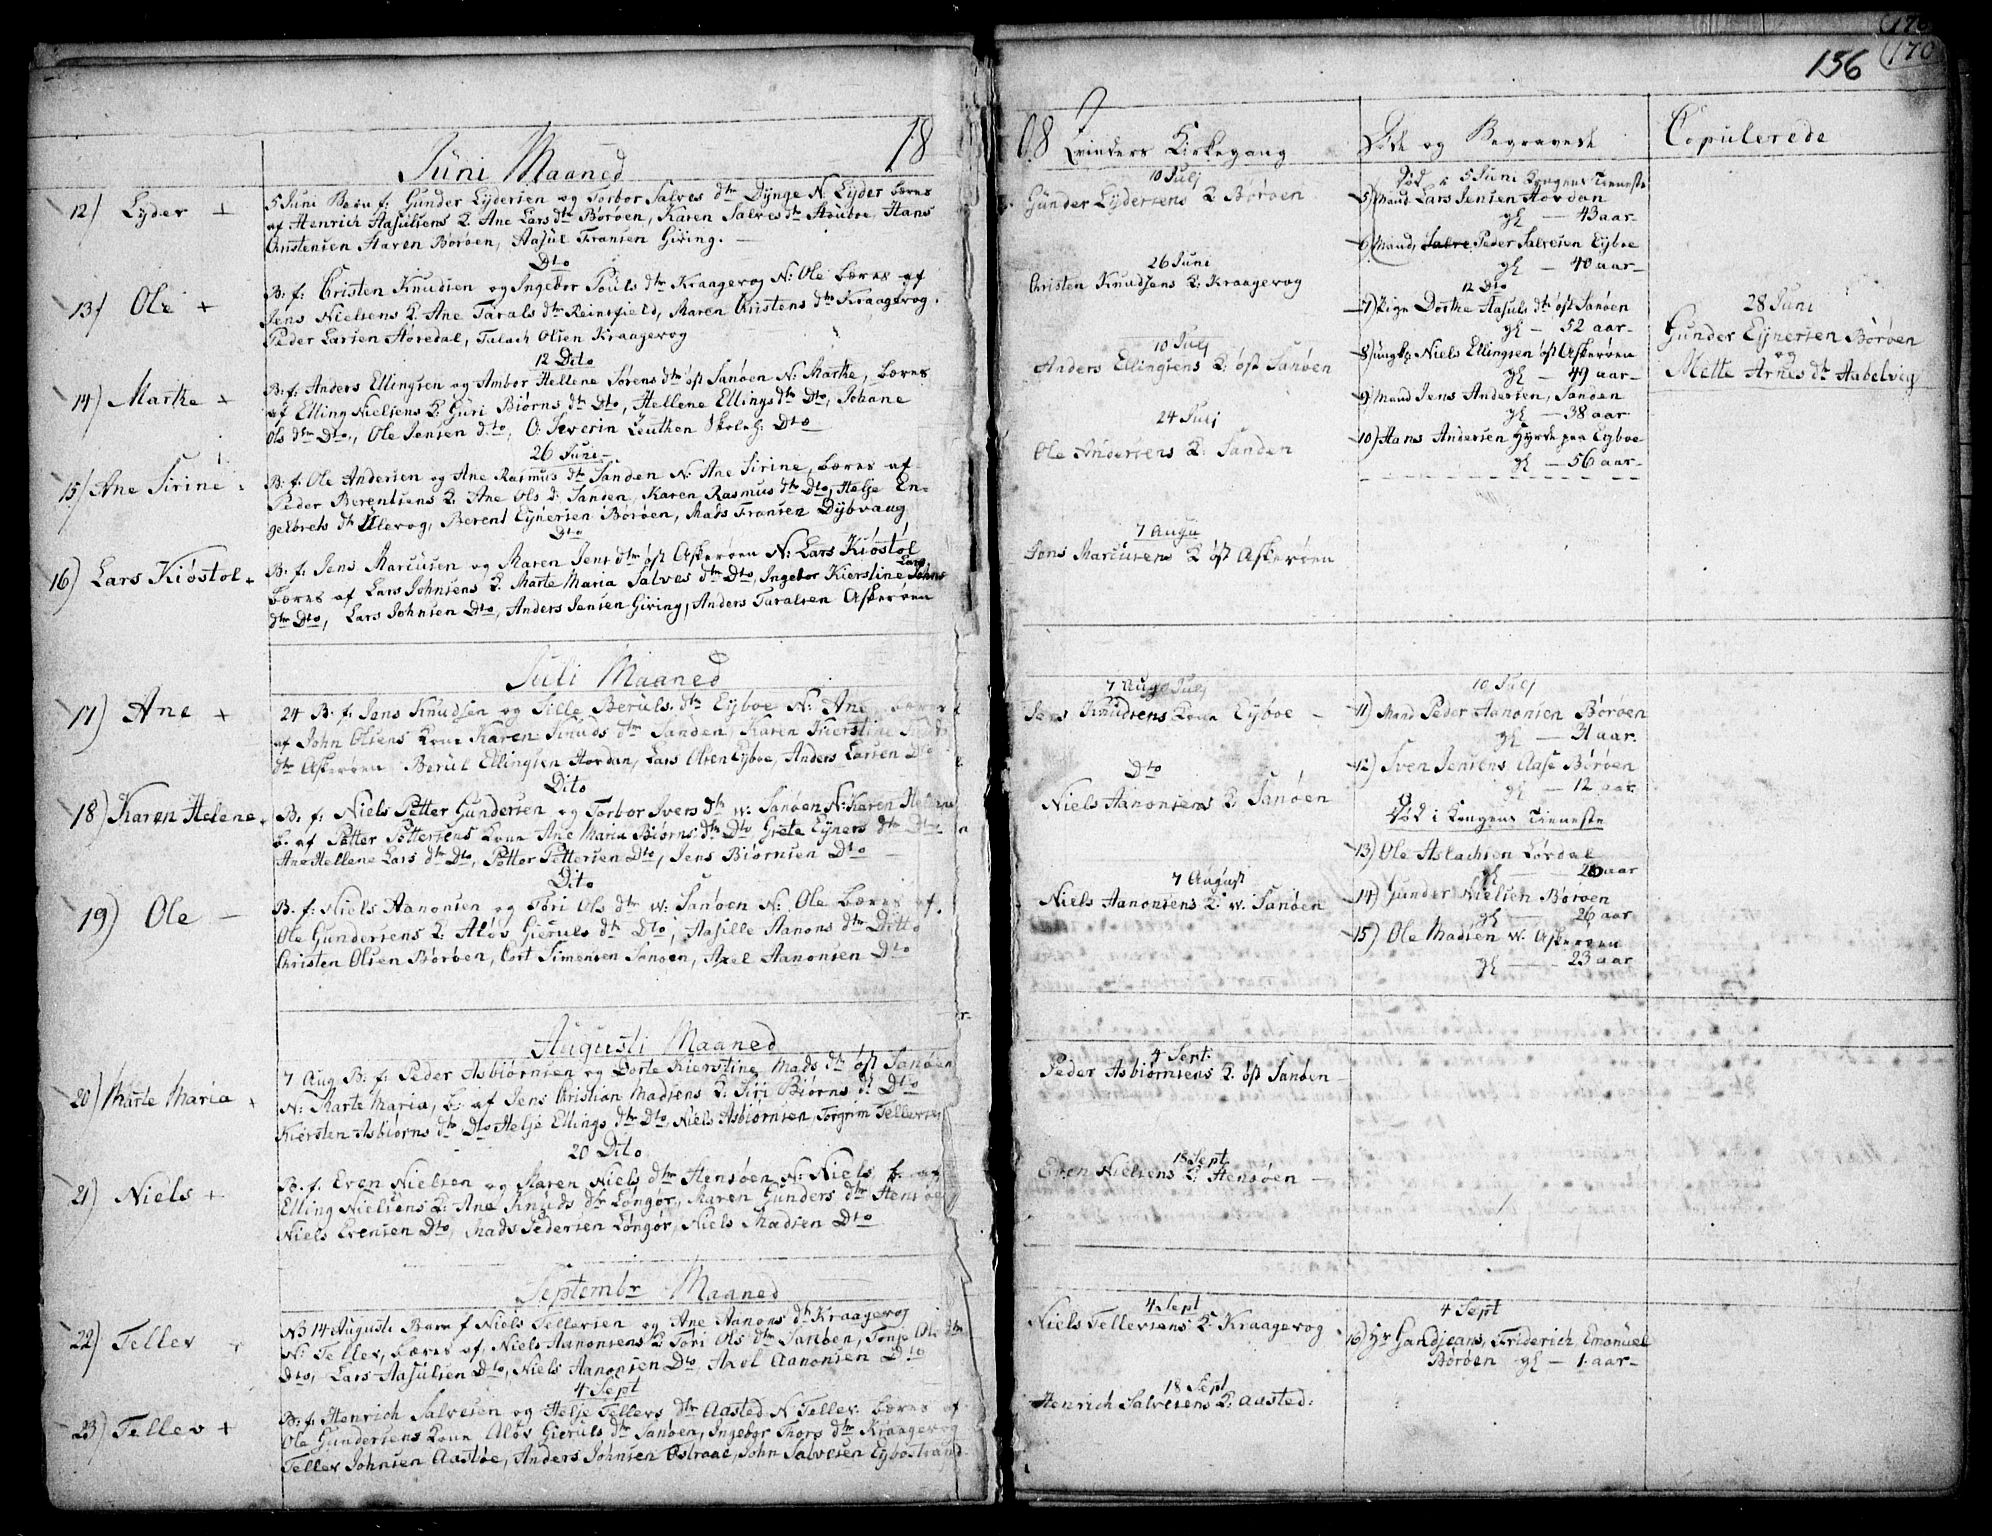 18
Juni Maaned
12) Lyder +
5 Juni Barn f: Gunder Lydersen og Torbor Salves dtr Dynge N. Lyder bæres
af Henrich Aasulsens K. Ane Lars dtr Børøen, Karen Salves dtr Houboe, Hans
Christensen Haven Børøen, Aasul Fransen Giving.
Dto
13) Ole +
B: f: Cristen Knudsen og Ingebor Pouls dtr Kraagevog N: Ole bæres af
Jens Nielsens K. Ane Tarals dtr Reinsfield, Maren Christens dtr Kraagevog.
Peder Larsen Høvedal, Talach Olsen Kraagevog
12 Dito
14) Marthe +
B: f: Anders Ellingsen og Ambor Hellene Sørens dtr øst Sanøen N: Marthe, bæres
af Elling Nielsens K: Guri Biørns dtr Dto, Hellene Ellings dtr Dto, Johane
Ols dtr Dto, Ole Jensen dto, O: Severin Leuthen Skoleh: Dto
26 Juni
15) Ane Sirine
B: f: Ole Andersen og Ane Rasmus dtr Sanden N: Ane Sirine, bæres af
Peder Berentsens K. Ane Ols d. Sanden, Karen Rasmus dtr Dto, Helje En-
gelbrets dtr Ulevog, Berent Eynersen Børøen, Mads Fransen Dybvaag
Dto
16) Lars Kiøstol +
B: f: Jens Marcusen og Maren Jens dtr øst Askerøen N: Lars Kiøstol
Lars
bæres af Lars Johnsens K. Marte Maria Salves dtr Dto, Ingebor Kierstine Johns
dtr Dto, Lars Johnsen Dto, Anders Jensen Giving, Anders Taralsen Askerøen
Juli Maaned
17) Ane +
24 B: f: Jens Knudsen og Sille Beruls dtr Eyboe N: Ane bæres
af John Olsens Kone Karen Knuds dtr Sanden, Karen Kierstine
dtr Askerøen Berul Ellingsen Hordan, Lars Olsen Eyboe, Anders Larsen Dto
Dito
18) Karen Helene
B: f: Niels Petter Gundersen og Torbor Ivers dtr w. Sanøen N: Karen Hellene
b. af Petter Pettersens Kone Ane Maria Biørns dtr Dto, Grete Eyners dtr Dto
Ane Hellene Lars dtr Dto, Petter Pettersen Dto, Jens Biørnsen Dto
Dito
19) Ole –
B. f: Niels Aanonsen og Tori Ols dtr w: Sanøen N: Ole bæres af
Ole Gundersens K: Aløv Gieruls dtr Dto, Aasille Aanons dtr Ditto
Christen Olsen Børøen, Cort Simensen Sanøen, Axel Aanonsen Dto
Augusti Maaned
20) Marte Maria +
7 Aug B: f: Peder Asbiørnsen og Dorte Kierstine Mads dtr øst Sanøen
N: Marte Maria, b: af Jens Christian Madsens K: Siri Biørns dtr Dto
Kiersten Asbiørns dtr Dto Helje Ellings dtr Dto, Niels Asbiørnsen, Torgrim Tellevsen
20 Dito
21) Niels +
B. f: Even Nielsen og Maren Niels dtr Hensøen N: Niels b. af
Elling Nielsens K: Ane Knuds dtr Longør, Maren Gunders dtr Hensøe
Niels Evensen Dto, Mads Pedersen Longør, Niels Madsen Dto
Septembr Maaned
22) Tellev
N3 14 Augusti Barn f Niels Tellevsen og Ane Aanons dtr Kraagevog
N: Tellev, bæres af Niels Aanonsens K Tori Ols dtr Sanøen, Tonje Ols dtr
Dto, Lars Aasulsen Dto, Niels Aanonsen Dto, Axel Aanonsen Dto
4 Sept
23) Tellev +
B: f: Henrich Salvesen og Helje Tellevs dtr Aasted N Tellev. bæres af
Ole Gundersens Kone Aløv Gieruls dtr Sanøen, Ingebor Thors dtr Kraagevog
Tellev Johnsen Aastøe, Anders Johnsen Østraae, John Salvesen Eybostrand
170
156
08
Qvinders Kirkegang
10 Julj
Gunder Lydersens K Børøen
26 Juni
Christen Knudsens K. Kraagevog
10 Julj
Anders Ellingsens K: øst Sanøen
24 Julj
Ole Andersens K: Sanden
7 Augu
Jens Marcusens K øst Askerøen
7 Aug Julj
Jens Knudsens Kone Eyboe
Dto
Niels Aanonsens K. Sanøen
7 August
Niels Aanonsens K. w. Sanøen
4 Sept.
Peder Asbiørnsens K. øst Sanøen
18 Sept
Even Nielsens K: Hensøen
4 Sept
Niels Tellevsens K. Kraagevog
18 Sept
Henrich Salvesens K: Aasted.
Døde og Begravede
død 5 Juni Kongens Tieneste
5) Mand Lars Jensen Hordan
gl — 43 aar
6) Mand, Salve Peder Salvesen Eyboe
gl — 40 aar
12 Dto
7) Pige Dorthe Aasuls dtr øst Sanøen
gl — 52 aar
8) ungk: Niels Ellingsen øst Askerøen
gl — 49 aar
9) Mand Jens Andersen, Sanøen
gl — 38 aar
10) Hans Andersen Hyrde paa Eyboe
gl — 56 aar
10 Julj
11) Mand Peder Aanonsen Børøen
gl — 31 aar.
12) Sven Jensens Aase Børøen
gl — 12 aar
Død i Kongens Tieneste
13) Ole Aslachsen Lørdal
gl — 20 aar
14) Gunder Nielsen Børøen
gl — 26 aar
15) Ole Madsen w. Askerøen
gl — 23 aar
4 Sept
16) Hr Gandjeans, Friderich Emanuel
Børøen gl — 1. aar
Copulerede
28 Juni
Gunder Eynersen Børøen
og
Mette Arnes dtr Aabelvig